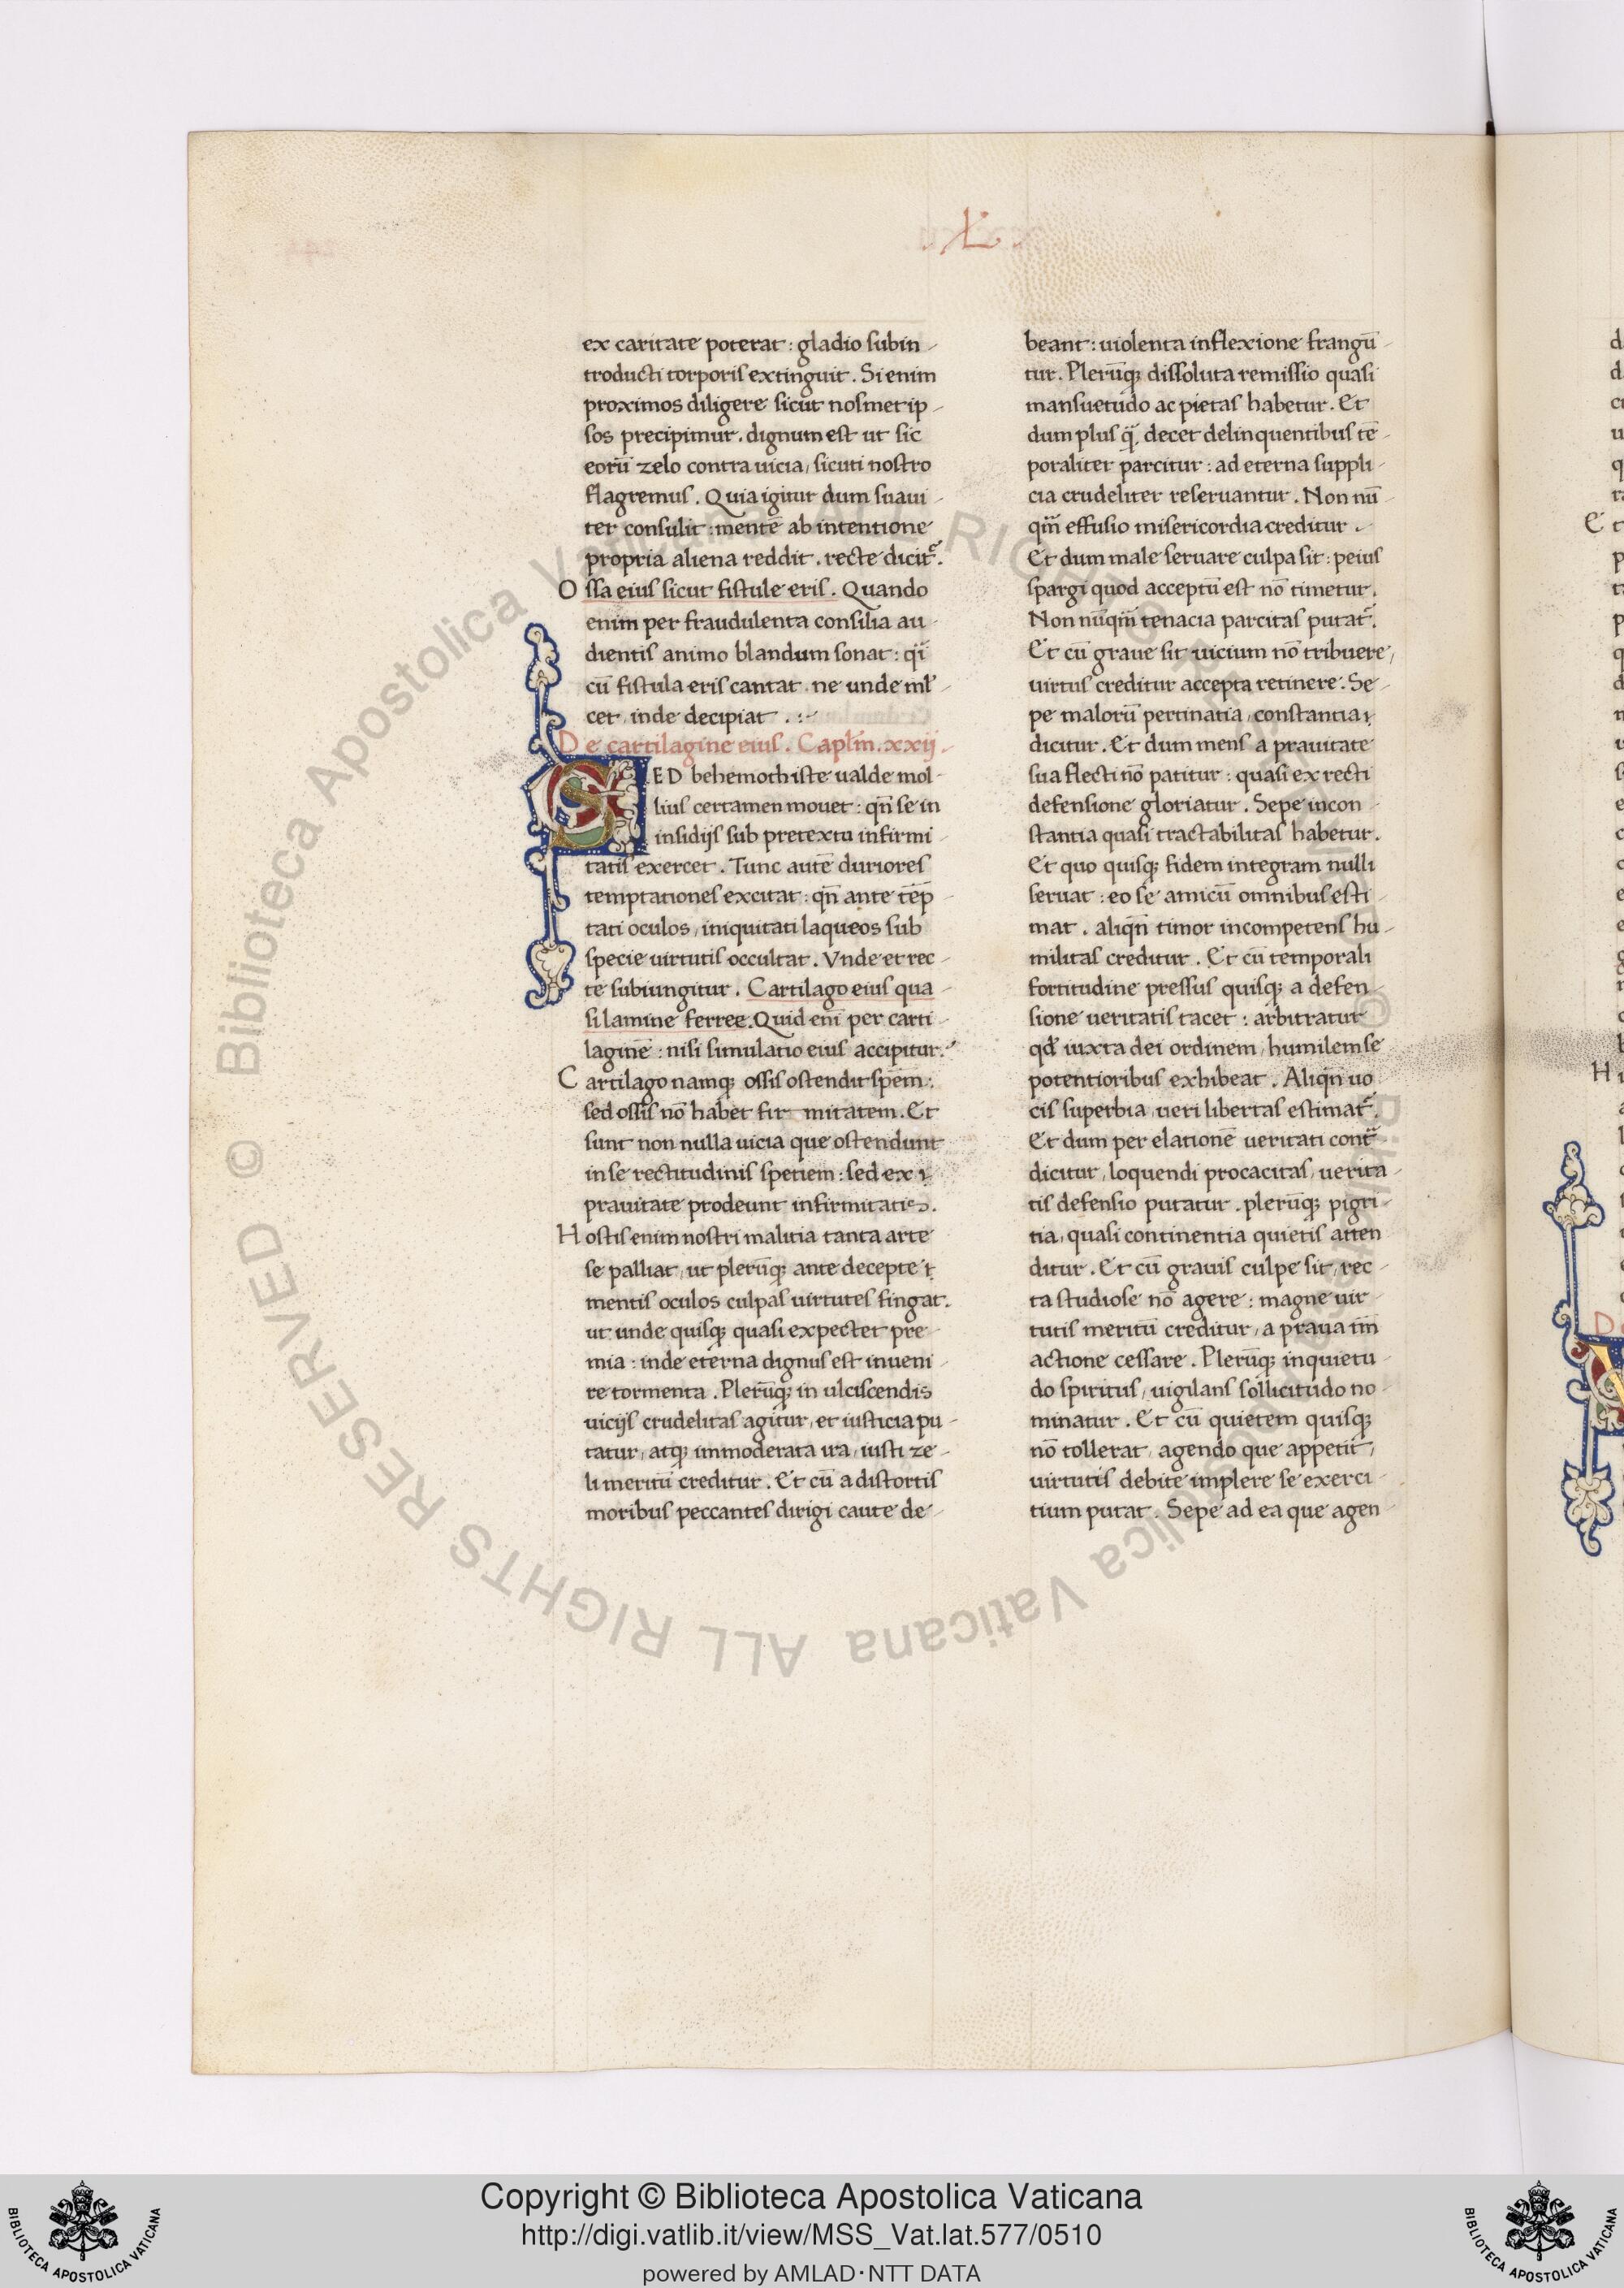 .L.
ex caritate poterat : gladio subin-
troducti torporis extinguit . Si enim
proximos diligere sicut nosmet ip-
sos precipimur . dignum est ut sic
eorū zelo contra uicia, sicuti nostro
flagremus . Quia igitur dum suaui-
ter consulit : mentē ab intentione
propria aliena reddit . recte dicit᷑.
Ossa eius sicut fistule eris . Quando
enim per fraudulenta consilia au-
dientis animo blandum sonat : q̄i
cū fistula eris cantat . ne unde ml̓-
cet, inde decipiat . :-
De cartilagine eius . Capl̄m . xxij.
SED behemoth iste ualde mol-
lius certamen mouet : qn̄ se in
insidijs sub pretextu infirmi-
tatis exercet . Tunc autē duriores
temptationes excitat : qn̄ ante tēp-
tati oculos, iniquitati laqueos sub
specie uirtutis occultat . Vnde et rec-
te subiungitur . Cartilago eius qua-
si lamine ferree . Quid eni̅ per carti-
laginē : nisi simulatio eius accipitur.
Cartilago namqꝫ ossis ostendit spēm :
sed ossis nō habet fir mitatem . Et
sunt non nulla uicia que ostendunt
in se rectitudinis spetiem : sed ex
prauitate prodeunt infirmitatis.
Hostis enim nostri malitia tanta arte
se palliat, ut plerūqꝫ ante decepte
mentis oculos culpas uirtutes fingat.
ut unde quisqꝫ quasi expectet pre-
mia : inde eterna dignus est inueni-
re tormenta . Plerūqꝫ in ulciscendis
uicijs crudelitas agitur, et iusticia pu-
tatur, atqꝫ immoderata ira, iusti ze-
li meritū creditur . Et cū a distortis
moribus peccantes dirigi caute de-
beant : uiolenta inflexione frangū-
tur . Plerūqꝫ dissoluta remissio quasi
mansuetudo ac pietas habetur . Et
dum plus q̄ decet delinquentibus tē-
poraliter parcitur : ad eterna suppli-
cia crudeliter reseruantur . Non nū-
qm̄ effusio misericordia creditur .
Et dum male seruare culpa sit : peius
spargi quod acceptū est nō timetur.
Non nūqm̄ tenacia parcitas putat᷑.
Et cū graue sit uicium nō tribuere,
uirtus creditur accepta retinere . Se-
pe malorū pertinatia, constantia
dicitur . Et dum mens a prauitate
sua flecti nō patitur : quasi ex recti
defensione gloriatur . Sepe incon-
stantia quasi tractabilitas habetur.
Et quo quisqꝫ fidem integram nulli
seruat : eo se amicū omnibus esti-
mat . aliqn̄ timor incompetens hu-
militas creditur . Et cū temporali
fortitudine pressus quisqꝫ a defen-
sione ueritatis tacet : arbitratur
qđ iuxta dei ordinem, humilem se
potentioribus exhibeat . Aliqn̄ uo-
cis superbia, ueri libertas estimat᷑.
Et dum per elationē ueritati contᷓ
dicitur, loquendi procacitas, uerita-
tis defensio putatur . plerūqꝫ pigri-
tia, quasi continentia quietis atten-
ditur . Et cū grauis culpe sit, rec-
ta studiose nō agere : magne uir-
tutis meritū creditur, a praua tm̄
actione cessare . Plerūqꝫ inquietu-
do spiritus, uigilans sollicitudo no-
minatur . Et cū quietem quisqꝫ
nō tollerat, agendo que appetit,
uirtutis debite implere se exerci-
tium putat . Sepe ad ea que agen
© Biblioteca Apostolica Vaticana ALL RIGHTS RESERVED
© Biblioteca Apostolica Vaticana ALL RIGHTS RESERVED
Copyright © Biblioteca Apostolica Vaticana
http://digi.vatlib.it/view/MSS_Vat.lat.577/0510
powered by AMLAD·NTT DATA
BIBLIOTECA APOSTOLICA VATICANA
BIBLIOTECA APOSTOLICA VATICANA